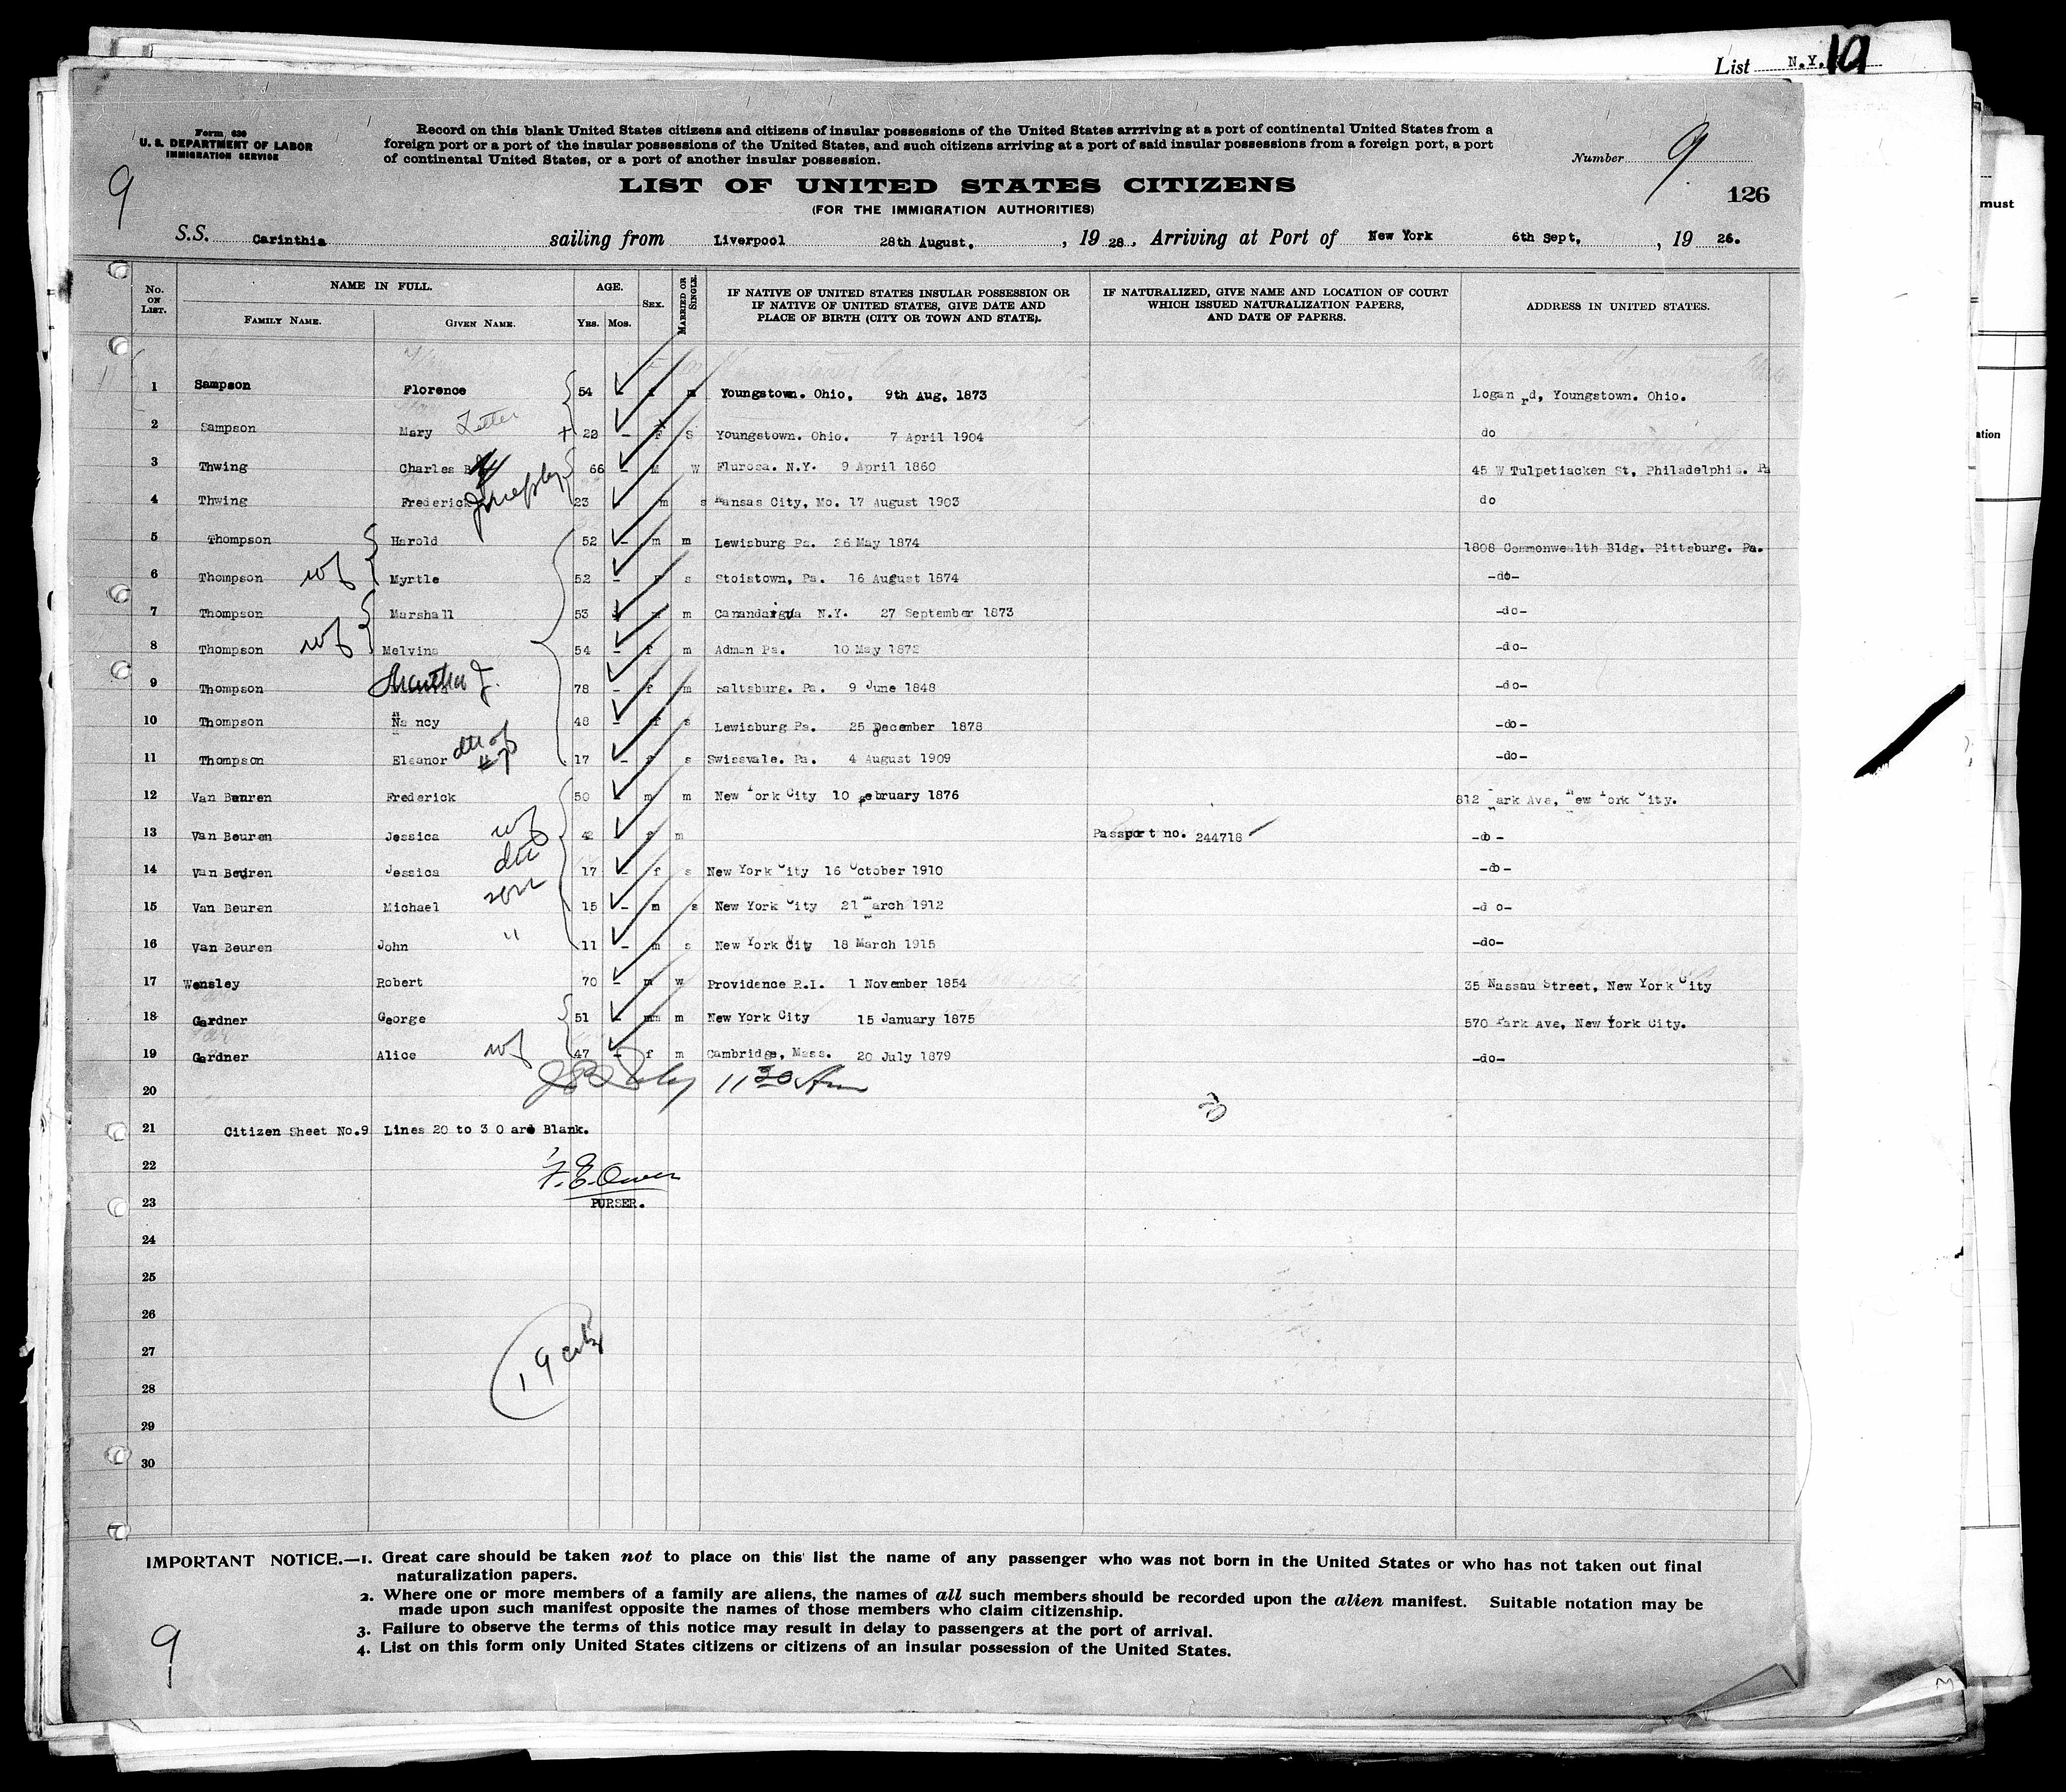 List N.Y. 10
Form 630
U. S. DEPARTMENT OF LABOR
IMMIGRATION SERVICE
Record on this blank United States citizens and citizens of insular possessions of the United States arrriving at a port of continental United States from a
foreign port or a port of the insular possessions of the United States, and such citizens arriving at a port of said insular possessions from a foreign port, a port
of continental United States, or a port of another insular possession.
Number 9
9
LIST OF UNITED STATES CITIZENS
126
(FOR THE IMMIGRATION AUTHORITIES)
S.S. Carinthia sailing from Liverpool 28th August, , 19 28. Arriving at Port of New York 6th Sept, , 19 26.
No. ON LIST. NAME IN FULL. FAMILY NAME. GIVEN NAME. AGE. YRS. MOS. SEX. MARRIED OR SINGLE. IF NATIVE OF UNITED STATES INSULAR POSSESSION OR IF NATIVE OF UNITED STATES, GIVE DATE AND PLACE OF BIRTH (CITY OR TOWN AND STATE). IF NATURALIZED, GIVE NAME AND LOCATION OF COURT WHICH ISSUED NATURALIZATION PAPERS, AND DATE OF PAPERS. ADDRESS IN UNITED STATES.
1 Sampson Florence 54 f m Youngstown. Ohio, 9th Aug, 1873 Logan rd, Youngstown. Ohio.
2 Sampson Mary Letter 22 – F S Youngstown. Ohio. 7 April 1904 do
3 Thwing Charles B 66 – M W Flurosa. N.Y. 9 April 1860 45 W Tulpetiacken St, Philadelphia. Pa
4 Thwing Frederick 23 m s Kansas City, Mo. 17 August 1903 do
5 Thompson Harold 52 – m m Lewisburg Pa. 26 May 1874 1808 Commonwealth Bldg. Pittsburg. Pa.
6 Thompson wf Myrtle 52 – F s Stoistown, Pa. 16 August 1874 –do–
7 Thompson Marshall 53 m m Canandaigua N.Y. 27 September 1873 –do–
8 Thompson wf Melvina 54 – f m Adman Pa. 10 May 1872 –do–
9 Thompson Martha J. 78 – f m Saltsburg. Pa. 9 June 1848 –do–
10 Thompson Nancy 48 – f s Lewisburg Pa. 25 December 1878 –do–
11 Thompson Eleanor dtr of #7 17 – f s Swissvale. Pa. 4 August 1909 –do–
12 Van Beuren Frederick 50 – m m New York City 10 February 1876 812 Park Ave, New York City.
13 Van Beuren Jessica wf 42 f m Passport no. 244718 –do–
14 Van Beuren Jessica dtr 17 – f s New York City 16 October 1910 –do–
15 Van Beuren Michael son 15 – m s New York City 21 March 1912 –do–
16 Van Beuren John " 11 – m s New York City 18 March 1915 –do–
17 Wensley Robert 70 – m w Providence R.I. 1 November 1854 35 Nassau Street, New York City
18 Gardner George 51 – m m New York City 15 January 1875 570 Park Ave, New York City.
19 Gardner Alice wf 47 – f m Cambridge, Mass. 20 July 1879 –do–
20 11 30 Am
21 Citizen Sheet No.9 Lines 20 to 30 are Blank.
22 F.E. Owen
23 PURSER.
24
25
26
27 19 citz
28
29
30
IMPORTANT NOTICE.—1. Great care should be taken not to place on this list the name of any passenger who was not born in the United States or who has not taken out final
naturalization papers.
2. Where one or more members of a family are aliens, the names of all such members should be recorded upon the alien manifest. Suitable notation may be
made upon such manifest opposite the names of those members who claim citizenship.
3. Failure to observe the terms of this notice may result in delay to passengers at the port of arrival.
4. List on this form only United States citizens or citizens of an insular possession of the United States.
9
must
ation